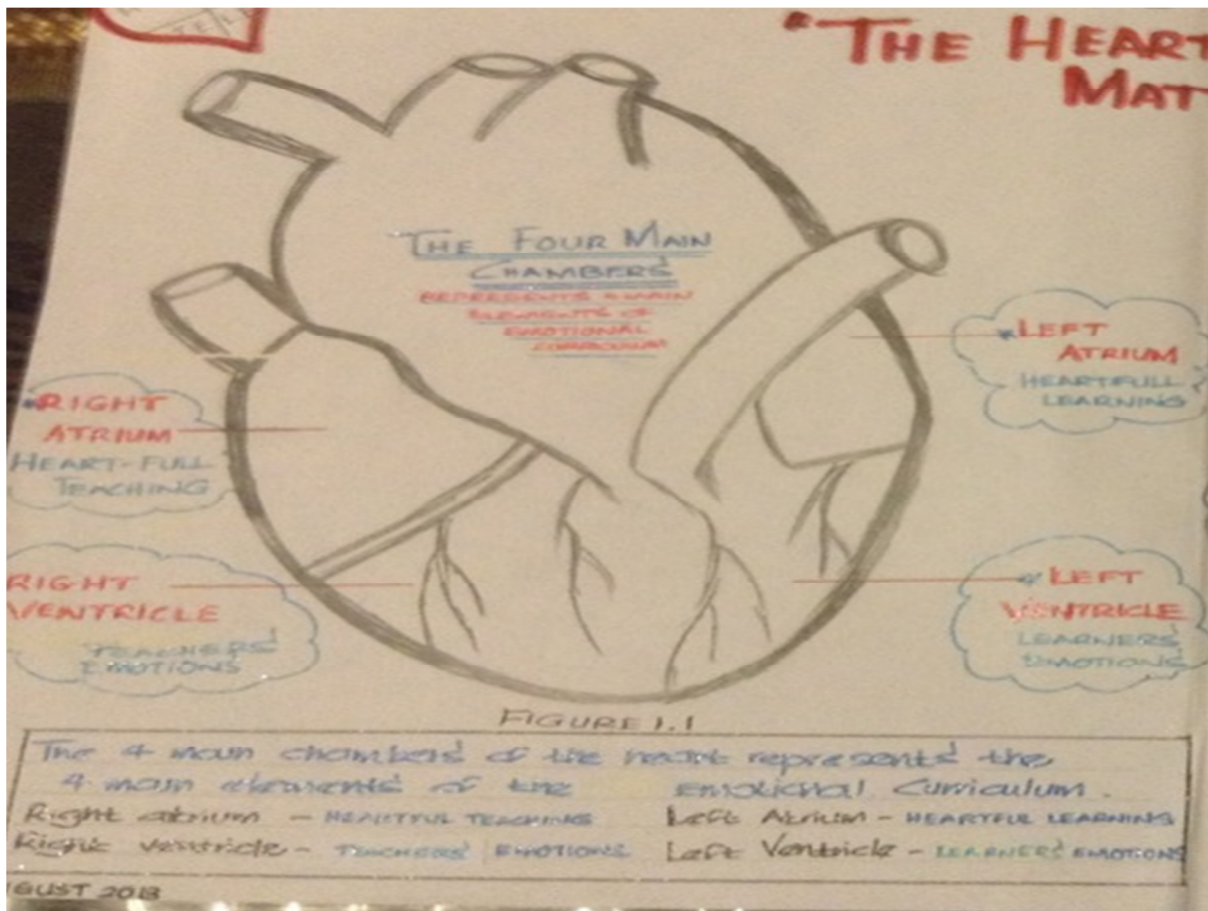 "THE HEART
MAT
THE FOUR MAIN
CHAMBERS
REPRESENTS 4 MAIN
ELEMENTS OF
EMOTIONAL
CURRICULUM
LEFT
ATRIUM
HEARTFULL
LEARNING
RIGHT
ATRIUM
HEART-FULL
TEACHING
RIGHT
VENTRICLE
TEACHERS'
EMOTIONS
LEFT
VENTRICLE
LEARNERS'
EMOTIONS
FIGURE 1.1
The 4 main chambers of the heart represents the
4 main elements of the Emotional Curriculum.
Right atrium - HEARTFUL TEACHING Left Atrium - HEARTFUL LEARNING
Right ventricle - TEACHERS' EMOTIONS Left Ventricle - LEARNERS' EMOTIONS
GUST 2013